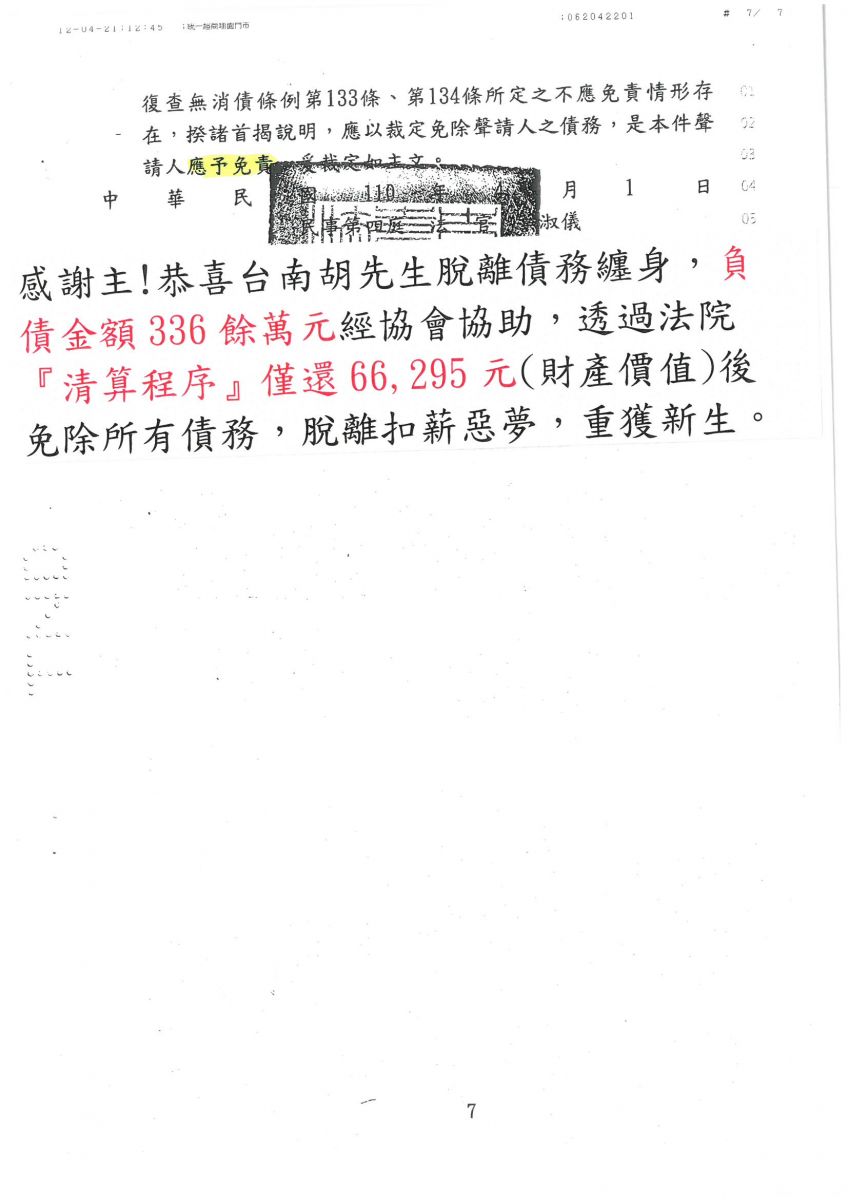 12-04-21;12:45 ;統一超商翊園門市 ;062042201 # 7/ 7
復查無消債條例第133條、第134條所定之不應免責情形存 01
在，揆諸首揭說明，應以裁定免除聲請人之債務，是本件聲 02
請人應予免責，爰裁定如主文。 03
中 華 民 國 110 年 4 月 1 日 04
民事第四庭 法 官 淑儀 05
感謝主!恭喜台南胡先生脫離債務纏身，負
債金額 336 餘萬元經協會協助，透過法院
『清算程序』僅還 66,295 元(財產價值)後
免除所有債務，脫離扣薪惡夢，重獲新生。
7